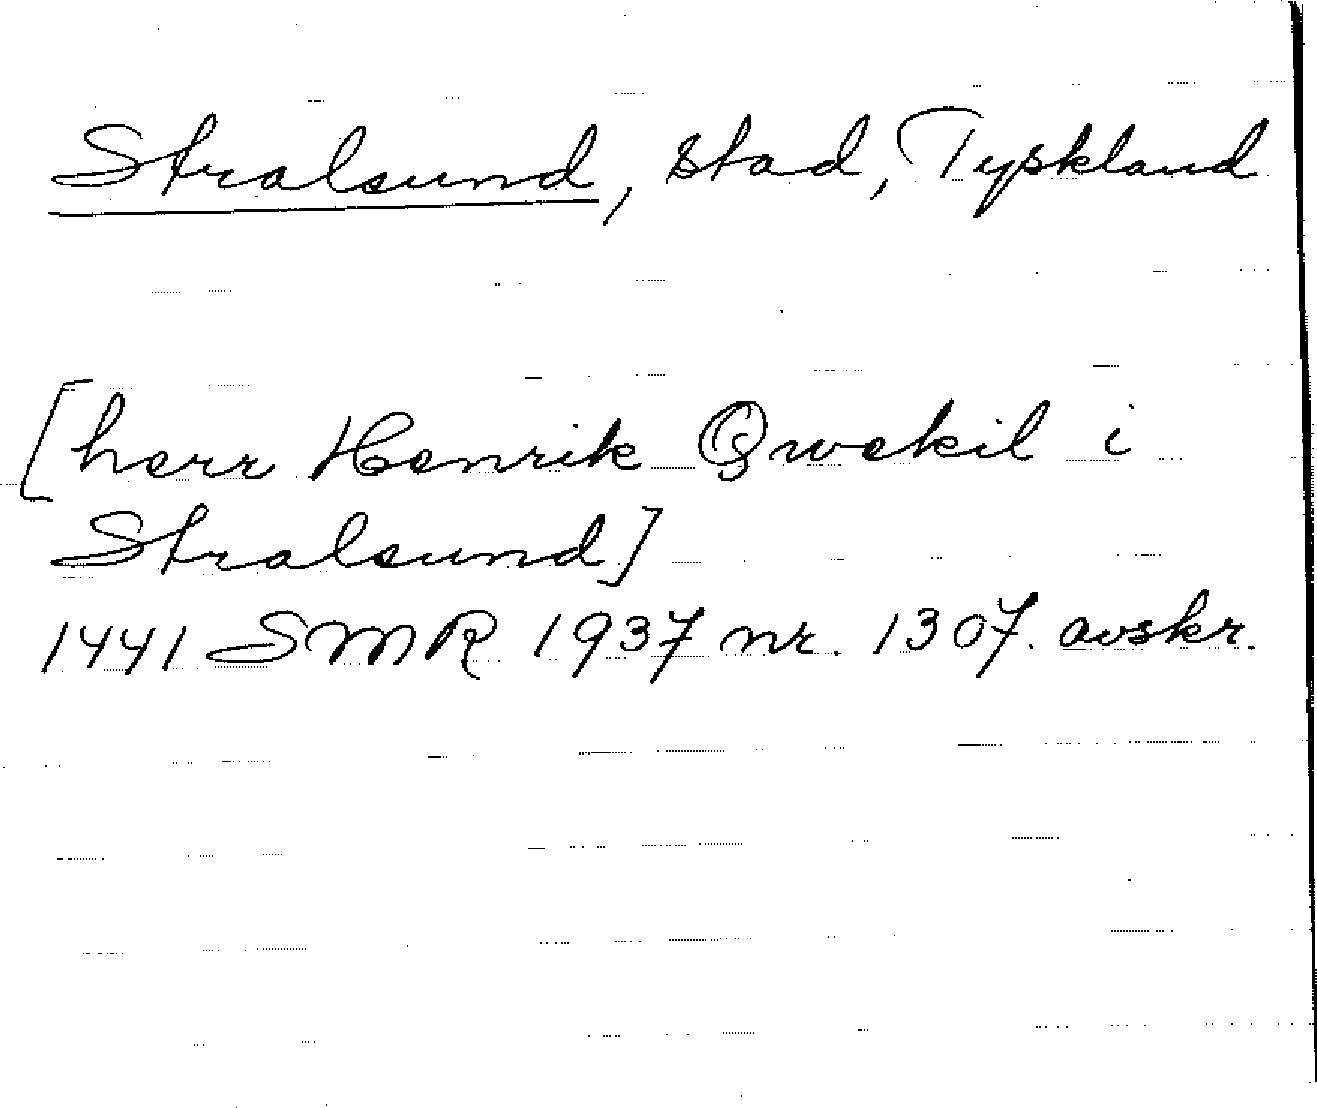 Stralsund, stad, Tyskland
[herr Henrik Qwekil i
Stralsund]
1441 SMR 1937 nr. 1307. avskr.